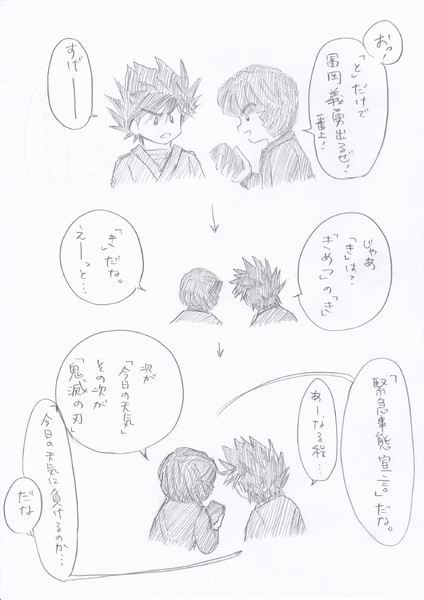 おっ!
「と」だけで
冨岡義勇出るぜ!
一番上!
すげーー
じゃあ
「き」は?
「きめつ」の「き」
「き」だな。
えーっと…
「緊急事態宣言。」だな。
あーなる程…
次が
「今日の天気」
その次が
「鬼滅の刃」
「今日の天気に負けるのか…
だな